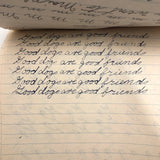 Good dogs are good friends
Good dogs are good friends
Good dog are good friends
Good dogs are good friends
Good dogs are good friends
Good dogs are good friends